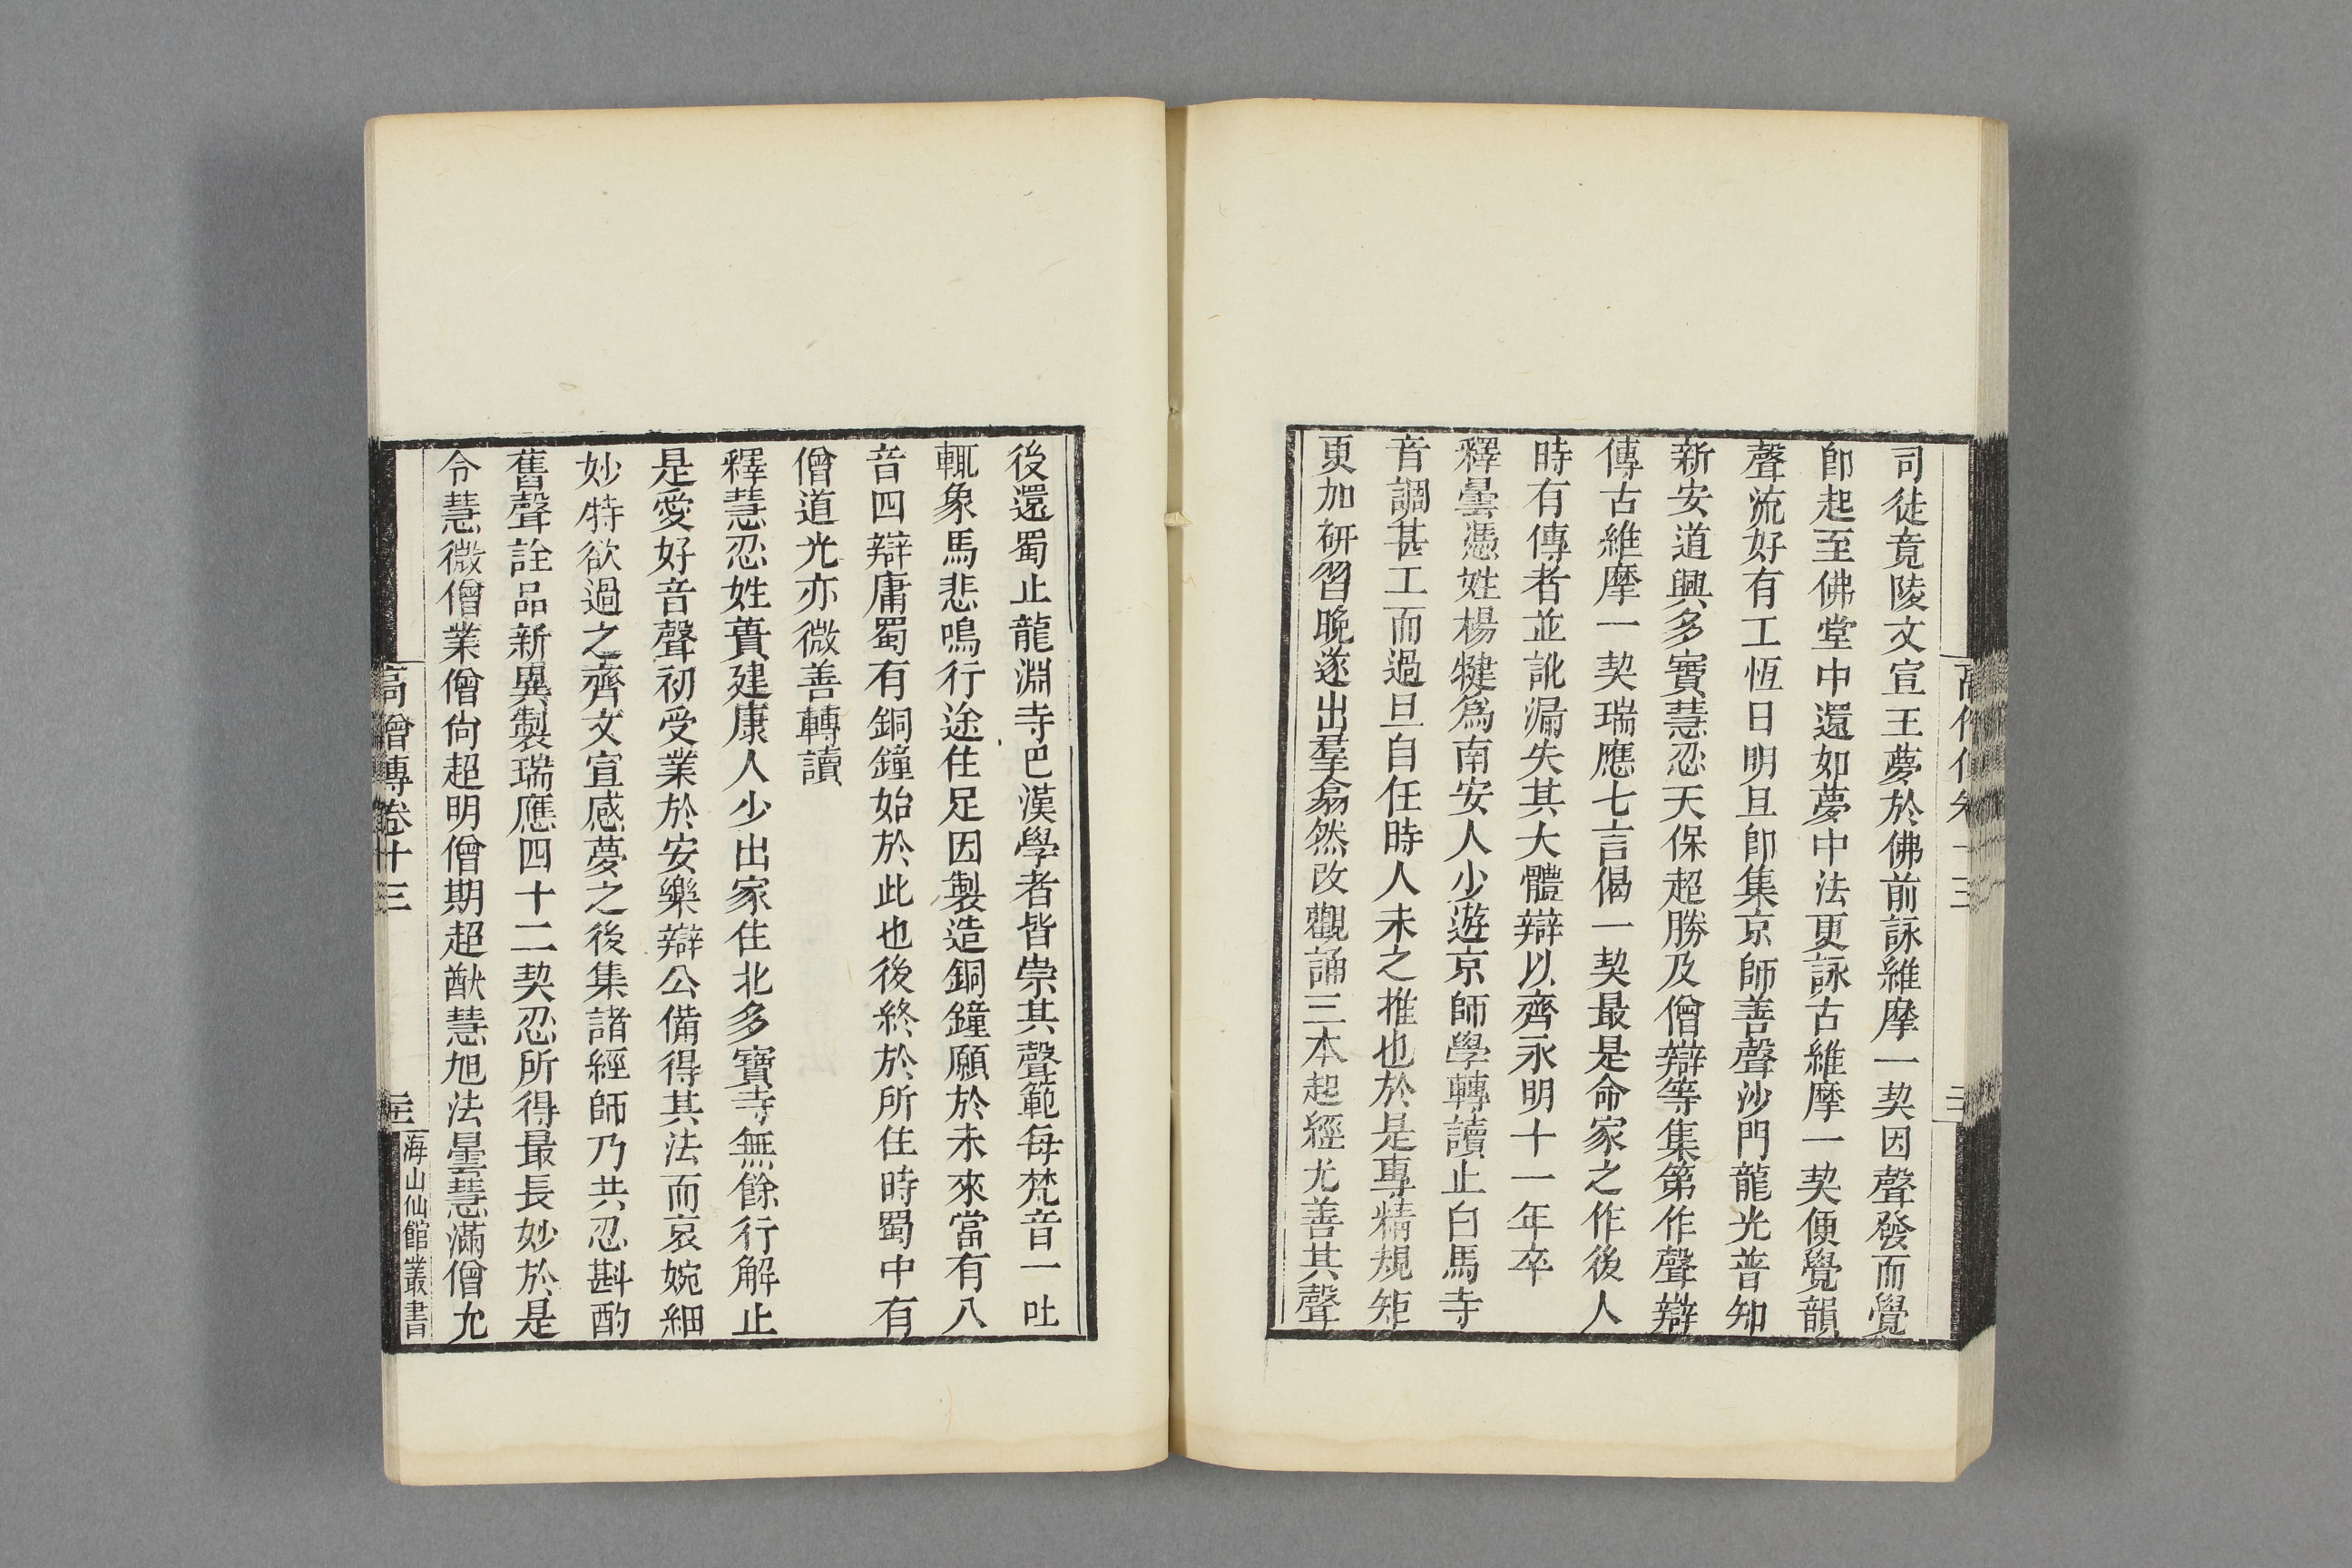 司徒竟陵文宣王夢於佛前詠維摩一契因聲發而覺
卽起至佛堂中還如夢中法更詠古維摩一契便覺韻
聲流好有工恆日明旦卽集京師善聲沙門龍光普知
新安道興多寶慧忍天保超勝及僧辯等集第作聲辯
傳古維摩一契瑞應七言偈一契最是命家之作後人
時有傳者並訛漏失其大體辯以齊永明十一年卒
釋曇憑姓楊犍爲南安人少遊京師學轉讀止白馬寺
音調甚工而過旦自任時人未之推也於是專精規矩
更加研習晚遂出羣翕然改觀誦三本起經尤善其聲
後還蜀止龍淵寺巴漢學者皆崇其聲範每梵音一吐
輒象馬悲鳴行途住足因製造銅鐘願於未來當有八
音四辯庸蜀有銅鐘始於此也後終於所住時蜀中有
僧道光亦微善轉讀
釋慧忍姓蕡建康人少出家住北多寶寺無餘行解止
是愛好音聲初受業於安樂辯公備得其法而哀婉細
妙特欲過之齊文宣感夢之後集諸經師乃共忍斟酌
舊聲詮品新異製瑞應四十二契忍所得最長妙於是
令慧微僧業僧尙超明僧期超猷慧旭法曇慧滿僧允
高僧傳卷十三
海山仙館叢書